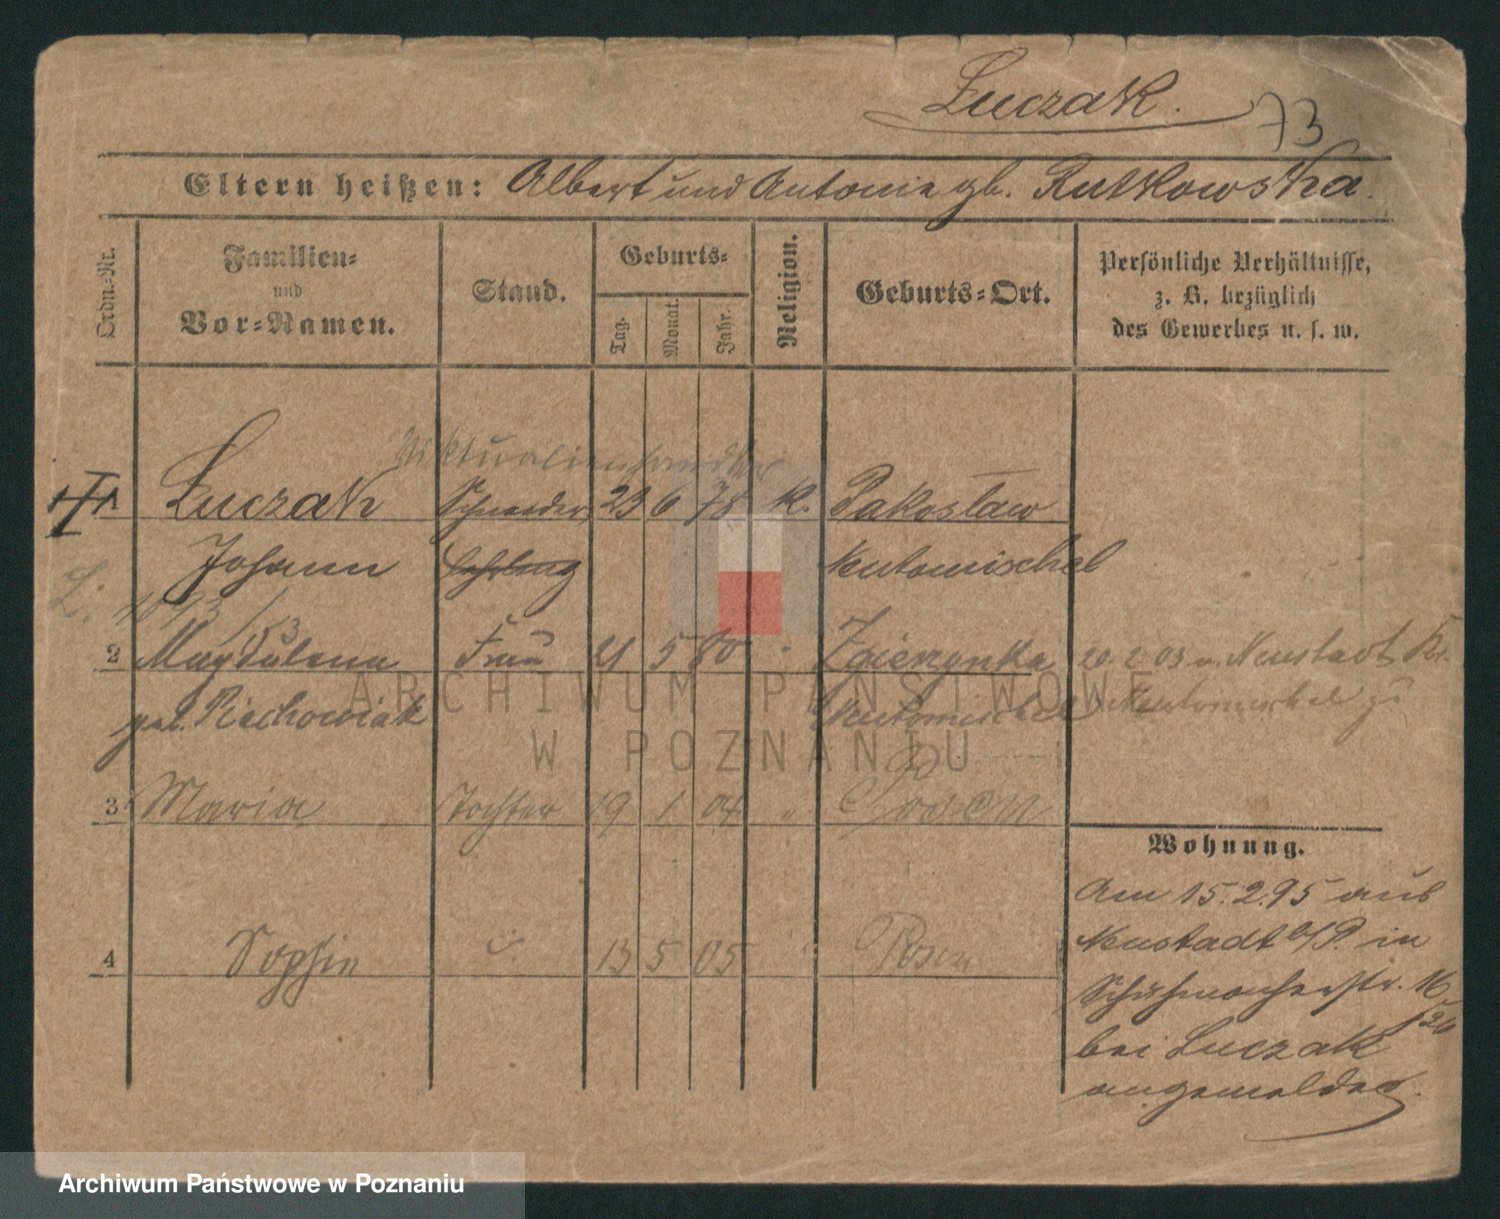 Luczak.
73
Eltern heißen: Albert und Antonie gb. Rutkowska.
Ordn.-Nr.
Familien-
und
Vor-Namen.
Stand.
Geburts-
Tag.
Monat.
Jahr.
Religion.
Geburts-Ort.
Persönliche Verhältnisse,
z. B. bezüglich
des Gewerbes u. s. w.
Viktualienhändler
Luczak Schneider 23 6 78 K. Pakosław
Johann Lehrling Neutomischel
L.
2 Magdalena Frau 21 5 80 " Zgierzynka 20. 2 03 v. Neustadt Kr.
geb. Piechowiak Neutomischel Neutomischel zu
3 Maria Tochter 19 1 04 " Posen
4 Sophie " 13 5 05 " Posen
Wohnung.
Am 15. 2. 95 aus
Neustadt b/P. in
Schuhmacherstr. 16
bei Luczak
angemeldet.
ARCHIWUM PAŃSTWOWE
W POZNANIU
Archiwum Państwowe w Poznaniu